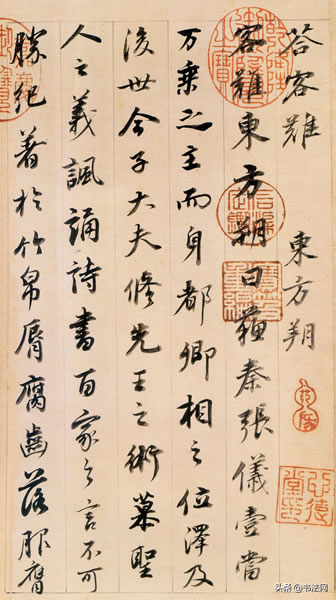 答客難 東方朔
客難東方朔曰蘇秦張儀壹當
万乘之主而身都卿相之位澤及
後世今子大夫修先王之術慕聖
人之義諷誦詩書百家之言不可
勝紀著於竹帛脣腐齒落服膺
头条 @书法网